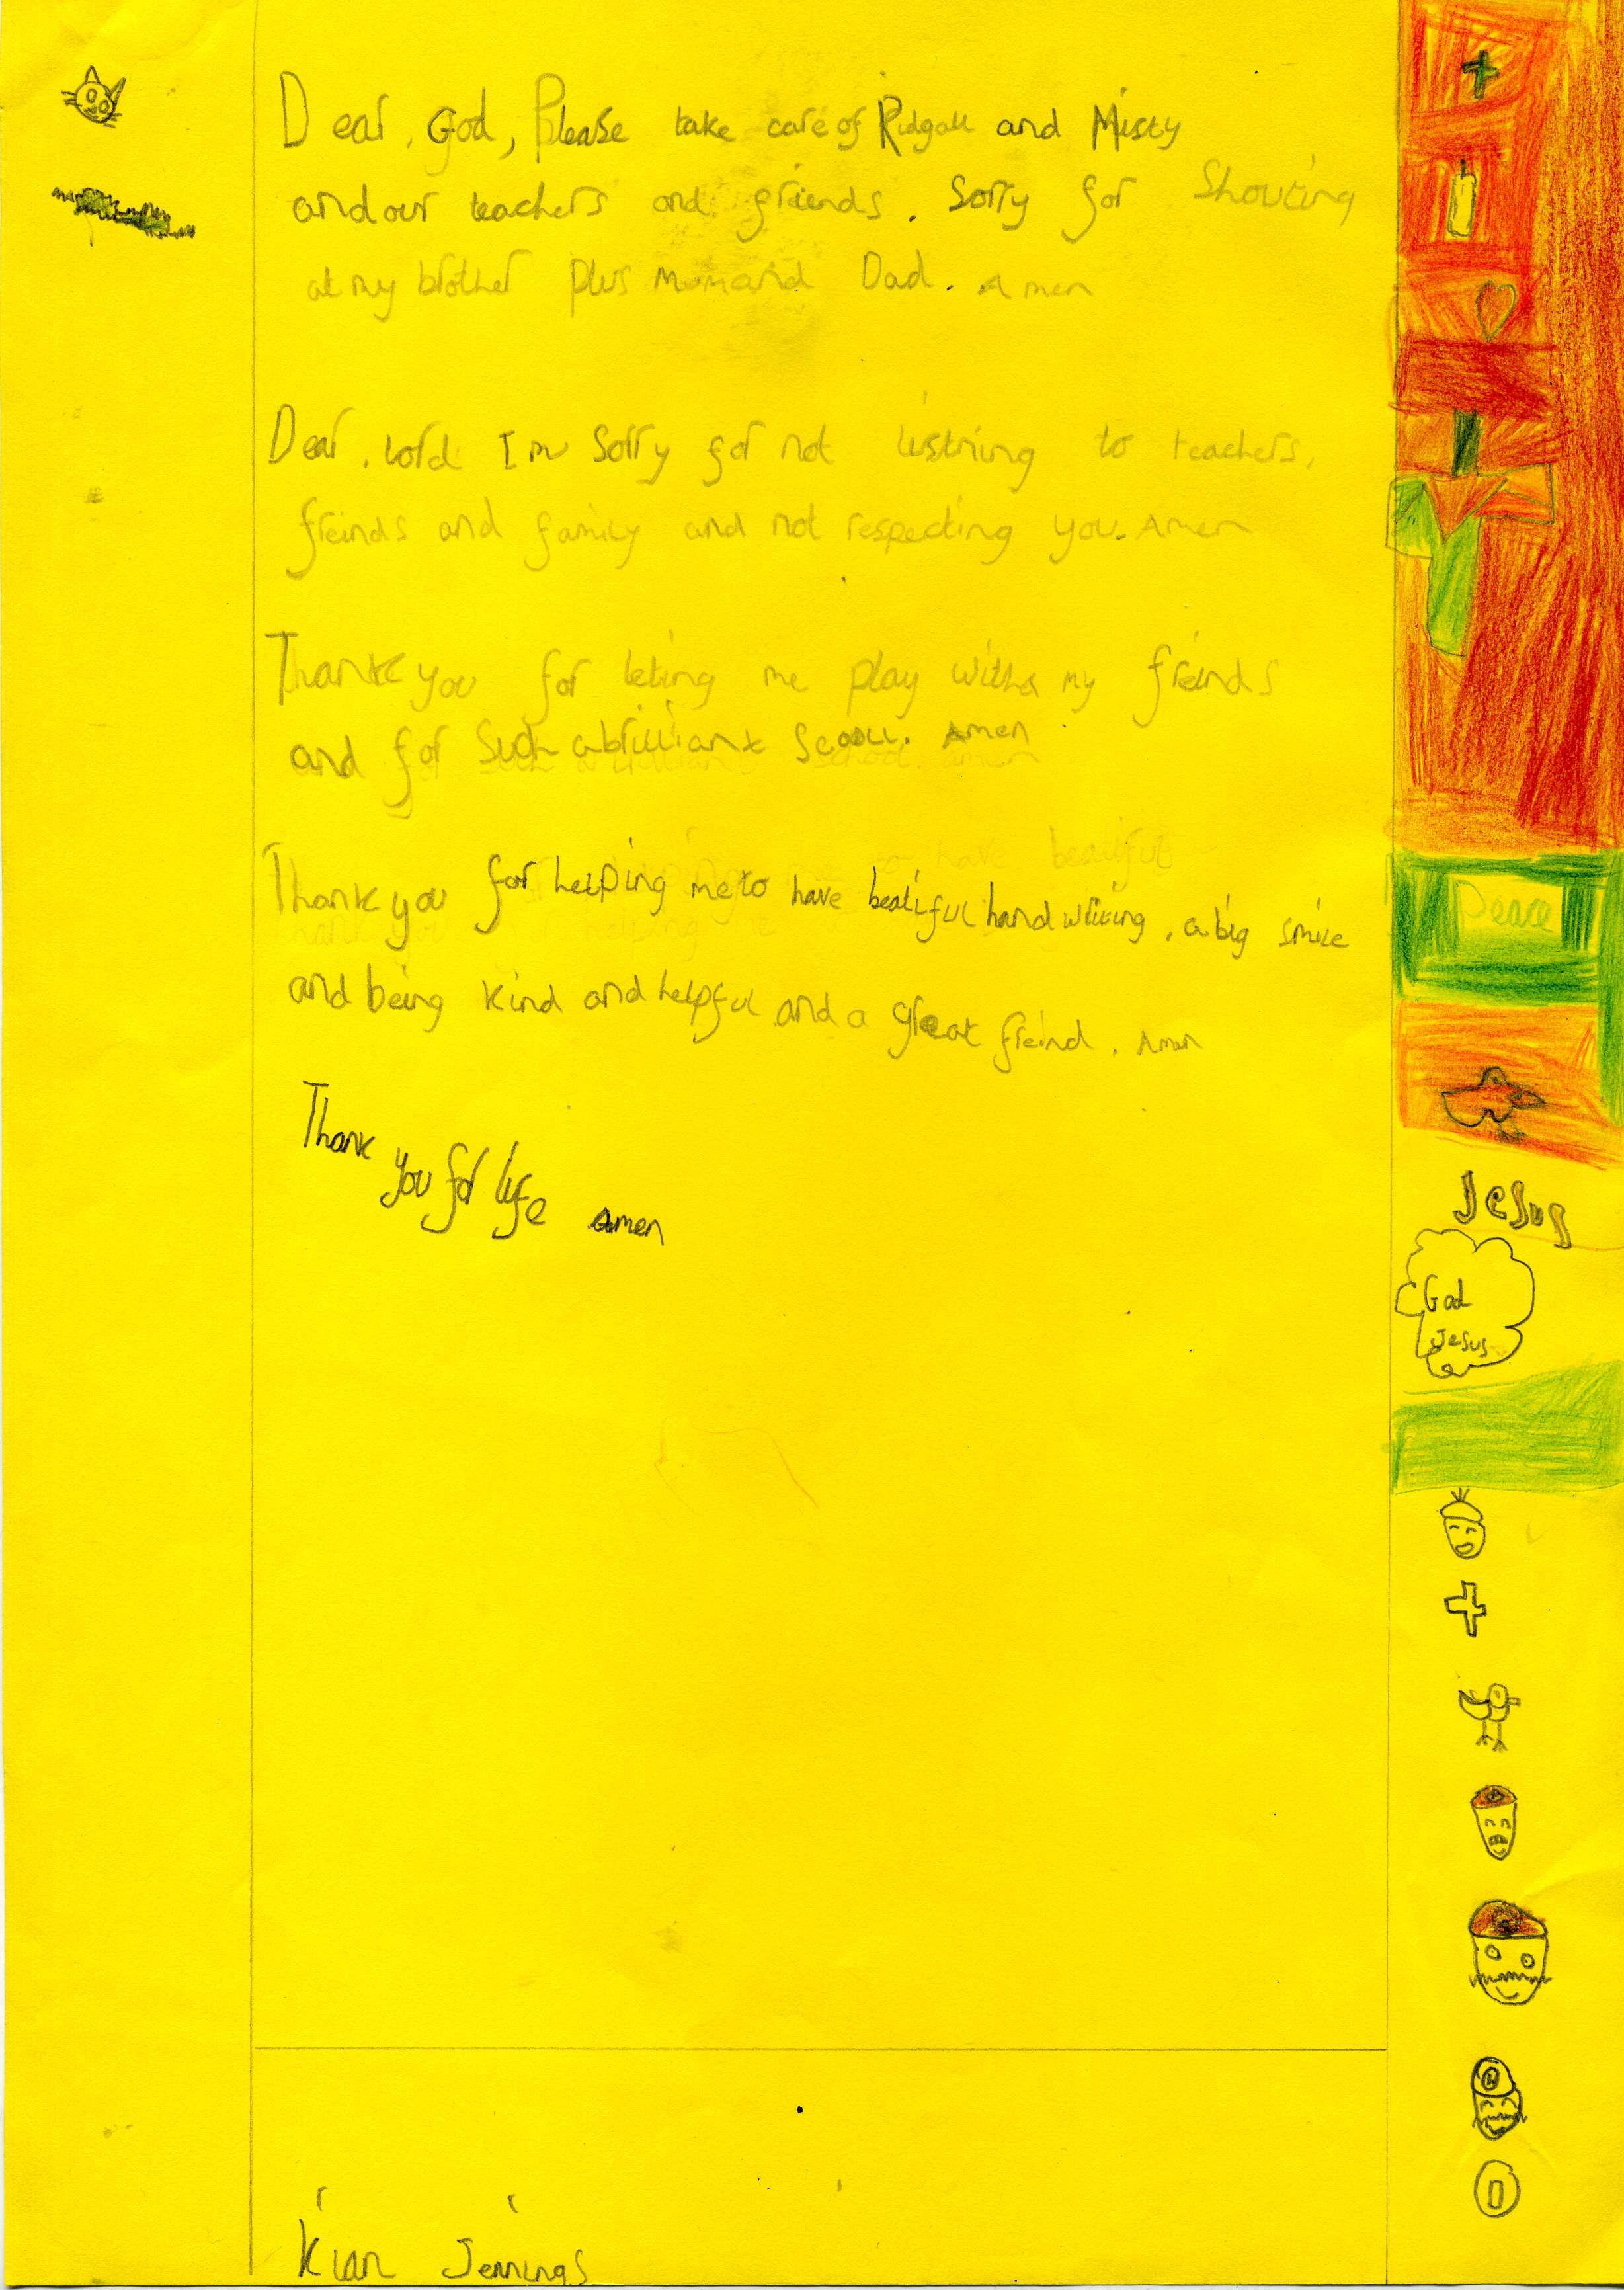 Dear, God, Please take care of Ridgall and Misty
and our teachers and friends. Sorry for Shouting
at my brother plus Mum and Dad. Amen
Dear, lord I'm Sorry for not listning to teachers,
freinds and family and not respecting you. Amen
Thank you for leting me play with my freinds
and for Such a brilliant Scool. Amen
Thank you for helping me to have beatiful hand writing, a big smile
and being kind and helpful and a great freind. Amen
Thank you for life amen
Peace
Jesus
God
Jesus
Kian Jennings